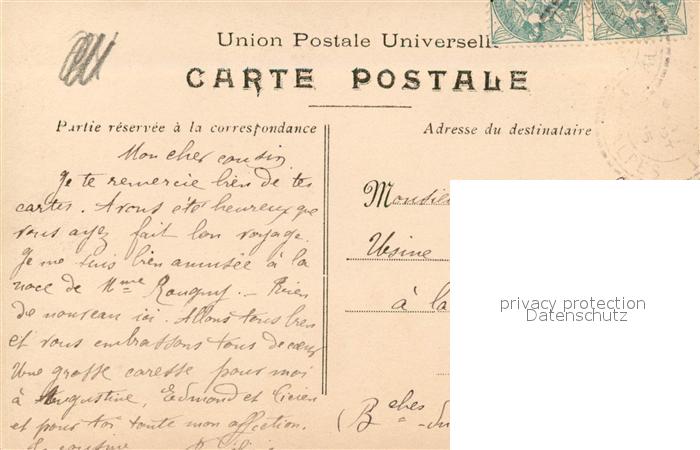 Union Postale Universelle
CARTE POSTALE
Partie réservée à la correspondance
Adresse du destinataire
Mon cher cousin
Je te remercie bien de tes
cartes. Avons été heureux que
vous ayez fait bon voyage.
Je me suis bien amusée à la
noce de Mme Rougny. — Rien
de nouveau ici. Allons tous bien
et vous embrassons tous de cœur
Une grosse caresse pour moi
à Augustine, Edmond et
et pour toi toute mon affection.
cousine
Monsieu
Usine
à la
(Bches - du
privacy protection
Datenschutz